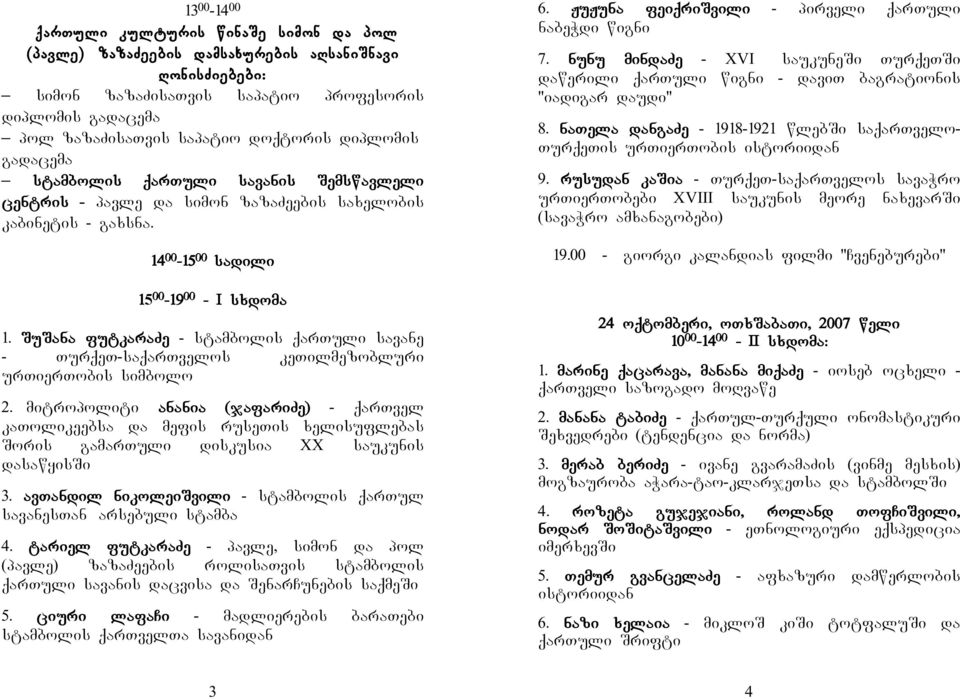 13 00-14 00
ქართული კულტურის წინაშე სიმონ და პოლ
(პავლე) ზაზაძეების დამსახურების აღსანიშნავი
ღონისძიებები:
– სიმონ ზაზაძისათვის საპატიო პროფესორის
დიპლომის გადაცემა
– პოლ ზაზაძისათვის საპატიო დოქტორის დიპლომის
გადაცემა
– სტამბოლის ქართული სავანის შემსწავლელი
ცენტრის - პავლე და სიმონ ზაზაძეების სახელობის
კაბინეტის - გახსნა.
14 00-15 00 სადილი
15 00-19 00 - I სხდომა
1. შუშანა ფუტკარაძე - სტამბოლის ქართული სავანე
- თურქეთ-საქართველოს კეთილმეზობლური
ურთიერთობის სიმბოლო
2. მიტროპოლიტი ანანია (ჯაფარიძე) - ქართველ
კათოლიკეებსა და მეფის რუსეთის ხელისუფლებას
შორის გამართული დისკუსია XX საუკუნის
დასაწყისში
3. ავთანდილ ნიკოლეიშვილი - სტამბოლის ქართულ
სავანესთან არსებული სტამბა
4. ტარიელ ფუტკარაძე - პავლე, სიმონ და პოლ
(პავლე) ზაზაძეების როლისათვის სტამბოლის
ქართული სავანის დაცვისა და შენარჩუნების საქმეში
5. ციური ლაფაჩი - მადლიერების ბარათები
სტამბოლის ქართველთა სავანიდან
3
6. ჟუჟუნა ფეიქრიშვილი - პირველი ქართული
ნაბეჭდი წიგნი
7. ნუნუ მინდაძე - XVI საუკუნეში თურქეთში
დაწერილი ქართული წიგნი - დავით ბაგრატიონის
"იადიგარ დაუდი"
8. ნათელა დანგაძე - 1918-1921 წლებში საქართველო-
თურქეთის ურთიერთობის ისტორიიდან
9. რუსუდან კაშია - თურქეთ-საქართველოს სავაჭრო
ურთიერთობები XVIII საუკუნის მეორე ნახევარში
(სავაჭრო ამხანაგობები)
19.00 - გიორგი კალანდიას ფილმი "ჩვენებურები"
24 ოქტომბერი, ოთხშაბათი, 2007 წელი
10 00-14 00 - II სხდომა:
1. მარინე ქაცარავა, მანანა მიქაძე - იოსებ ოცხელი -
ქართველი საზოგადო მოღვაწე
2. მანანა ტაბიძე - ქართულ-თურქული ონომასტიკური
შეხვედრები (ტენდენცია და ნორმა)
3. მერაბ ბერიძე - ივანე გვარამაძის (ვინმე მესხის)
მოგზაურობა აჭარა-ტაო-კლარჯეთსა და სტამბოლში
4. როზეტა გუჯეჯიანი, როლანდ თოფჩიშვილი,
ნოდარ შოშიტაშვილი - ეთნოლოგიური ექსპედიცია
იმერხევში
5. თემურ გვანცელაძე - აფხაზური დამწერლობის
ისტორიიდან
6. ნაზი ხელაია - მიკლოშ კიში ტოტფალუში და
ქართული შრიფტი
4